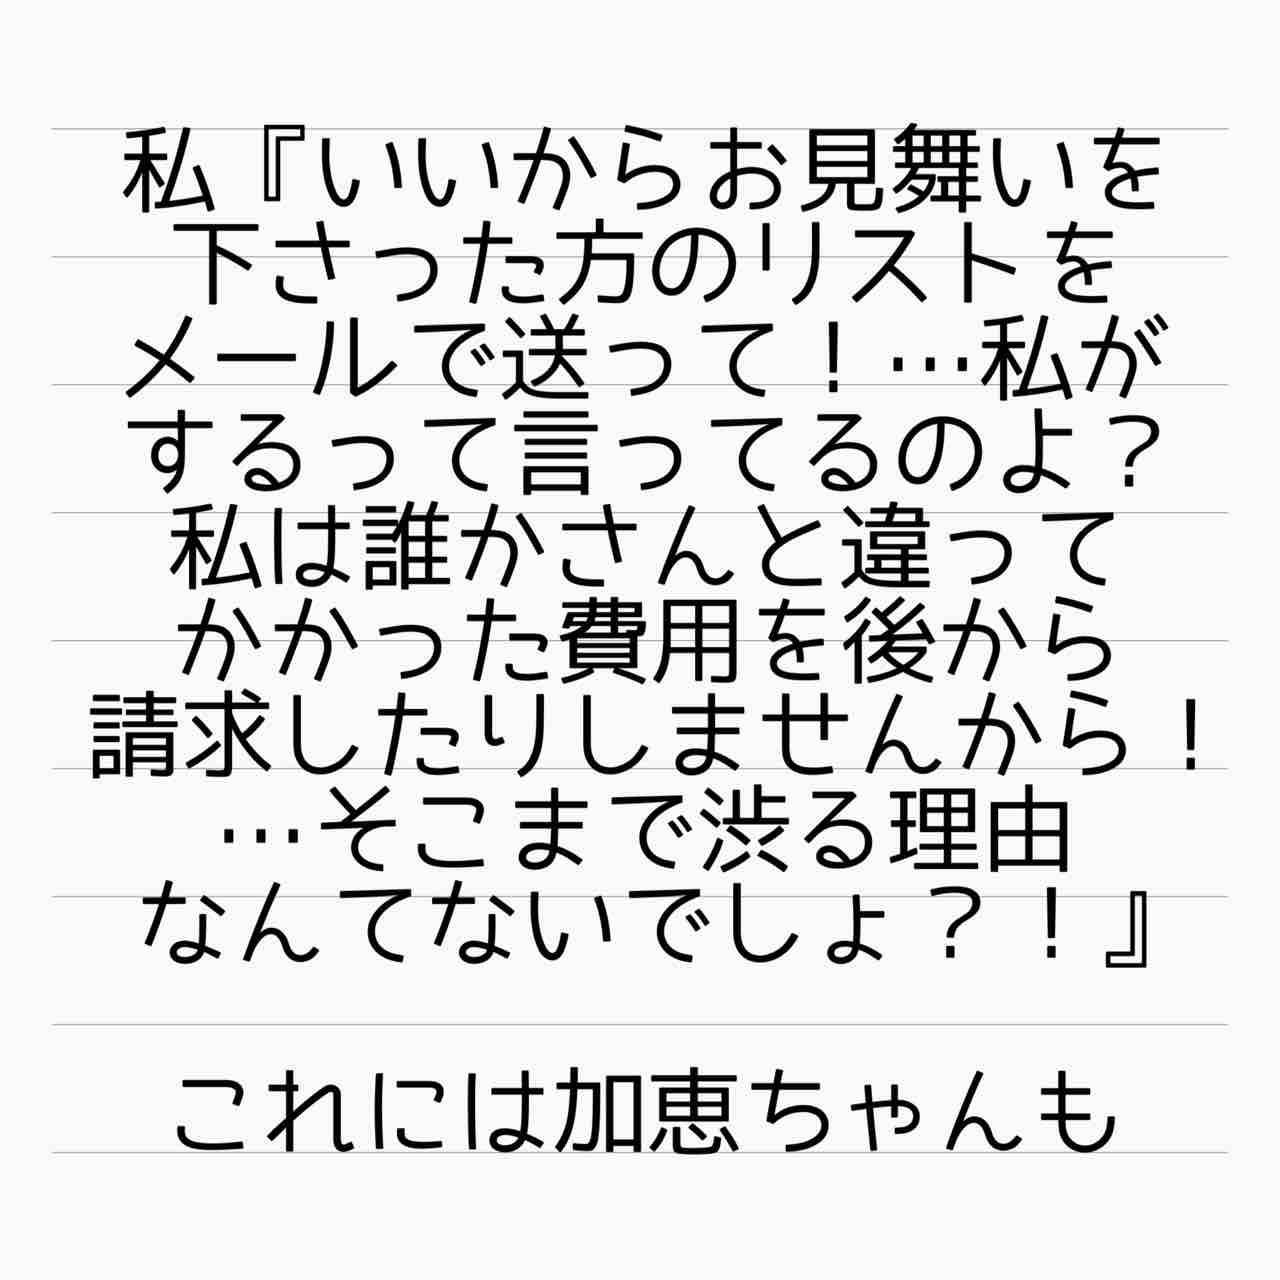 私『いいからお見舞いを
下さった方のリストを
メールで送って！…私が
するって言ってるのよ？
私は誰かさんと違って
かかった費用を後から
請求したりしませんから！
…そこまで渋る理由
なんてないでしょ？！』
これには加恵ちゃんも